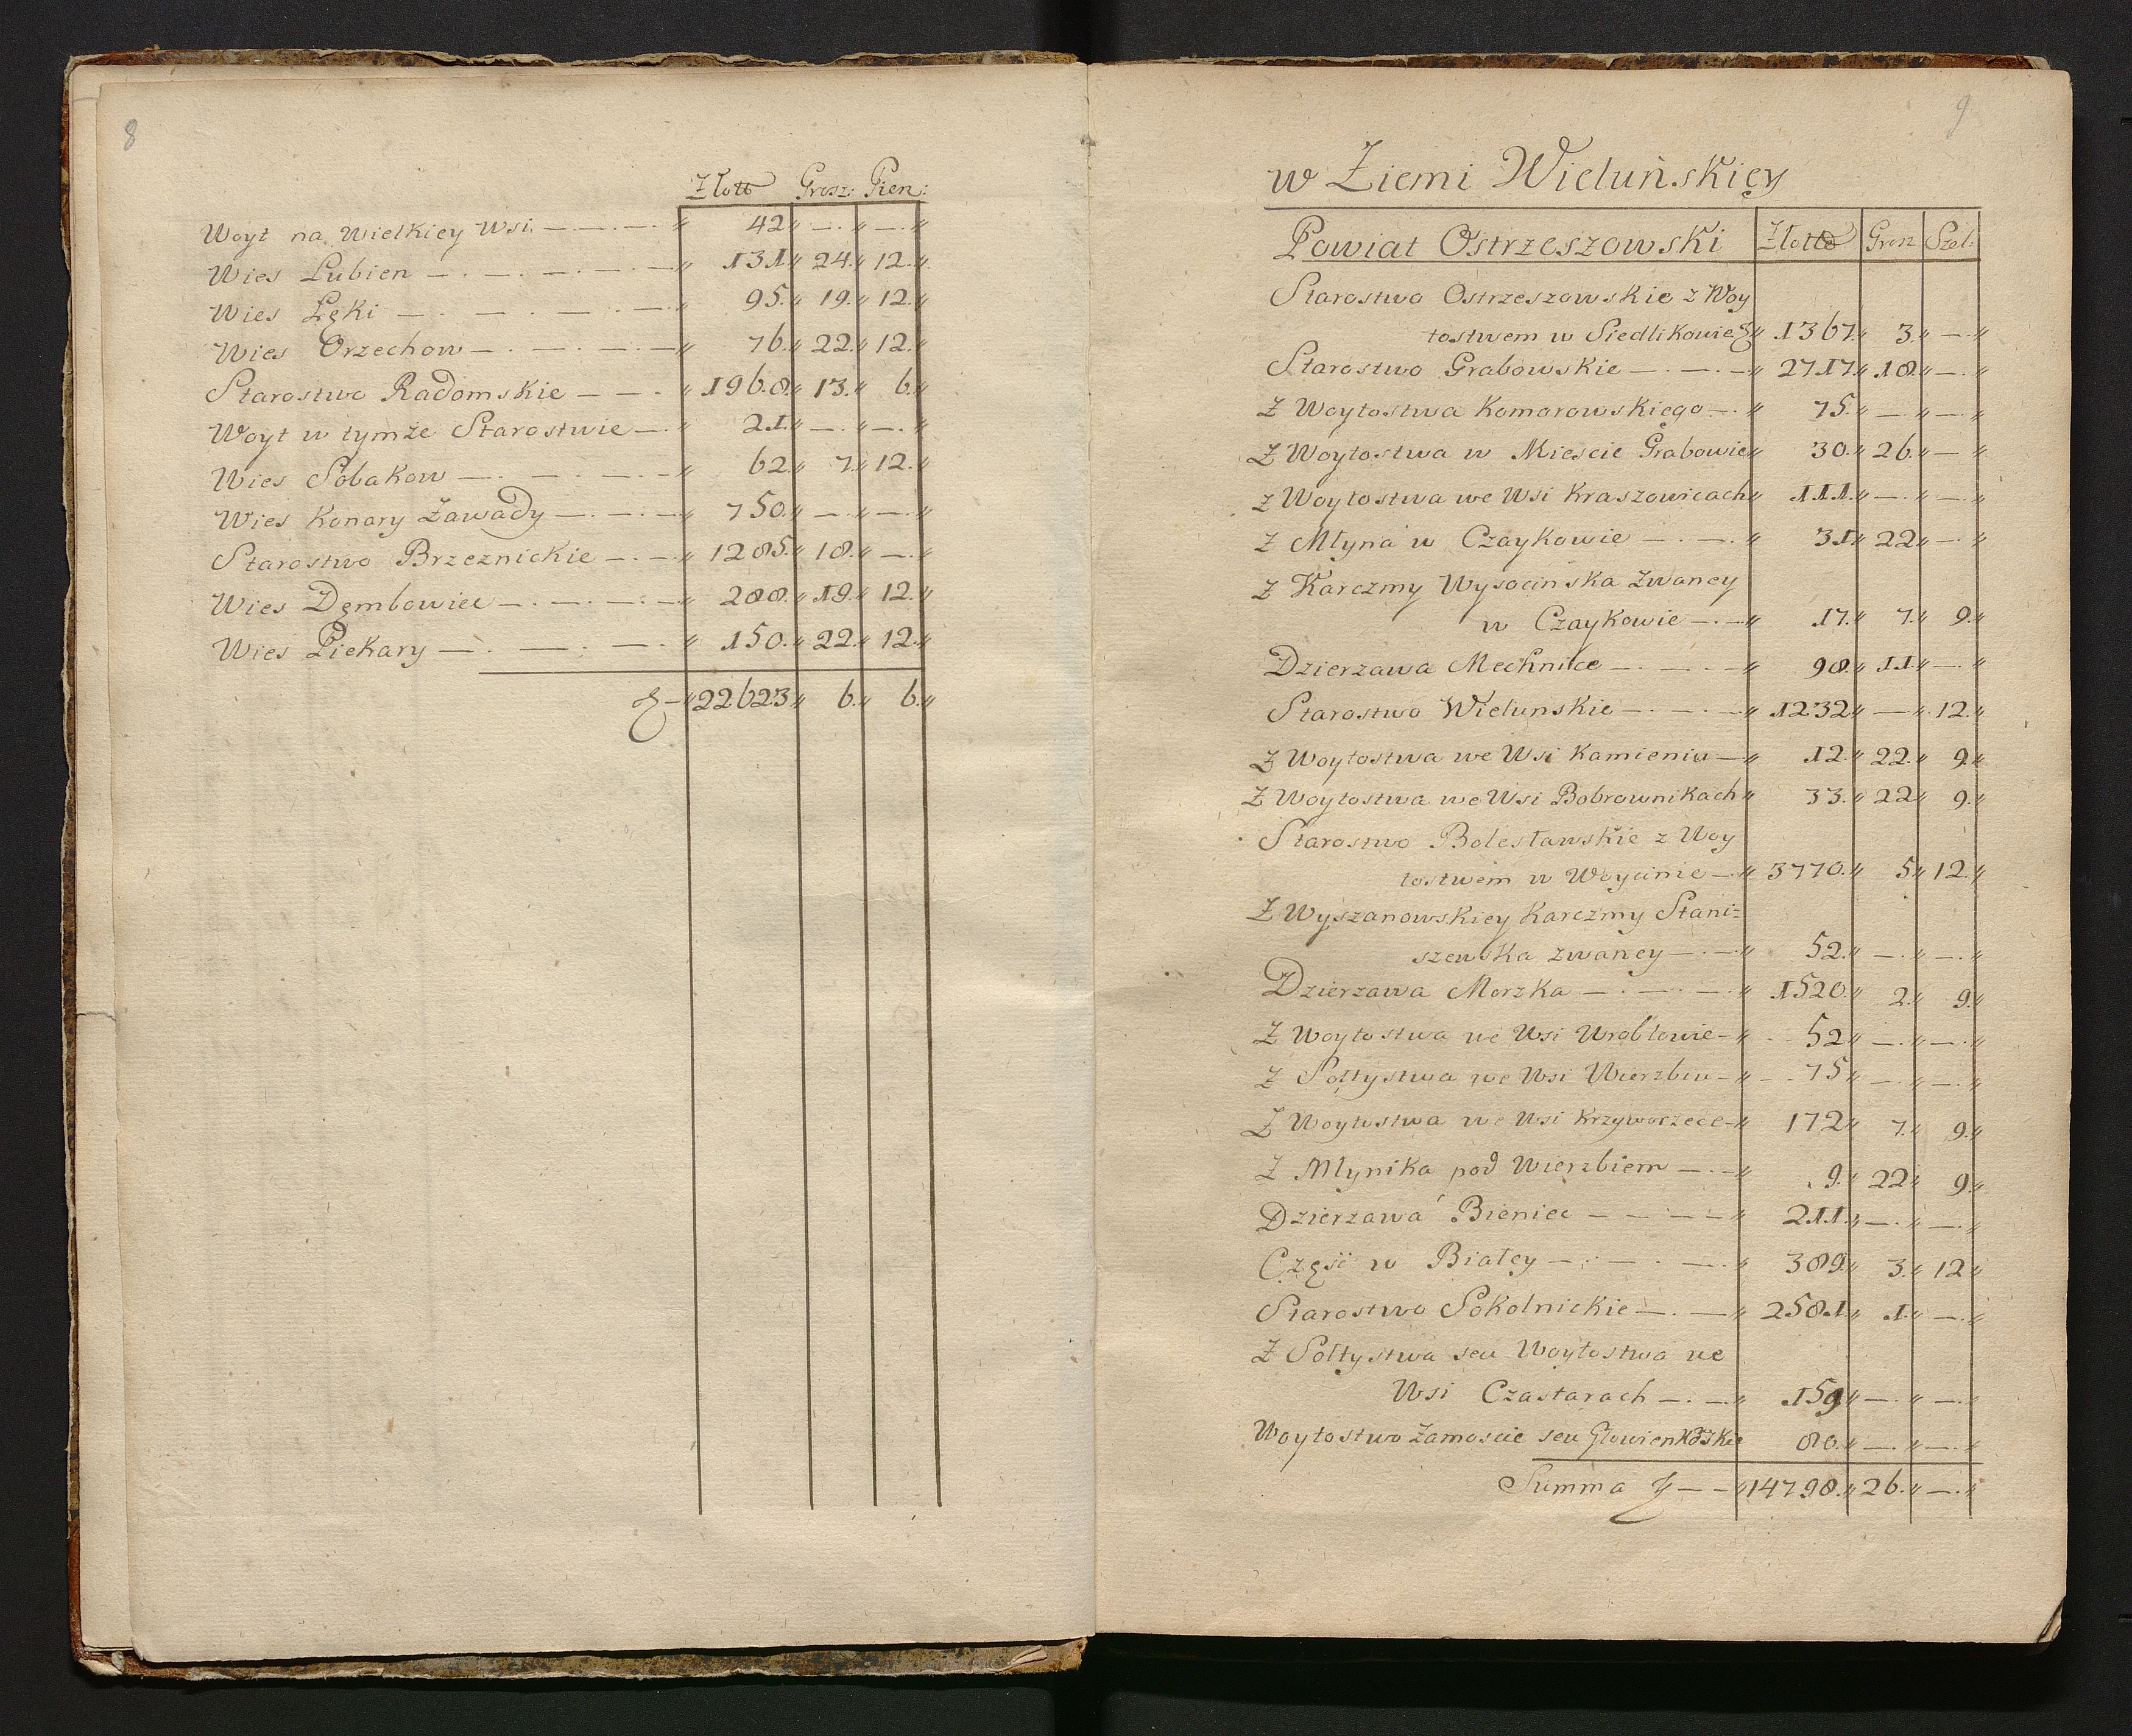 8
Złott Grosz: Pien:
Woyt na Wielkiey Wsi — 42 " — " — "
Wies Lubien — 131 " 24 " 12 "
Wies Łęki — 95 " 19 " 12 "
Wies Orzechow — 76 " 22 " 12 "
Starostwo Radomskie — 1968 " 13 " 6 "
Woyt w tymże Starostwie — 21 " — " — "
Wies Sobakow — 62 " 7 " 12 "
Wies Konary Zawady — 750 " — " — "
Starostwo Brzeznickie — 1285 " 18 " — "
Wies Dęmbowiec — 288 " 19 " 12 "
Wies Piekary — 150 " 22 " 12 "
22623 " 6 " 6 "
9
w Ziemi Wieluńskięy
Powiat Ostrzeszowski Złotto Grosz Szel:
Starostwo Ostrzeszowskie z Woy
tostwem w Siedlikowie " 1367 " 3 " — "
Starostwo Grabowskie — " 2717 " 18 " — "
Z Woytostwa Komorowskiego — " 75 " — " — "
Z Woytostwa w Miescie Grabowie " 30 " 26 " — "
Z Woytostwa we Wsi Kraszowicach " 111 " — " — "
Z Młyna w Czaykowie — " 31 " 22 " — "
Z Karczmy Wysocinska Zwaney
w Czaykowie — " 17 " 7 " 9 "
Dzierzawa Mechnice — " 98 " 11 " — "
Starostwo Wielunskie — " 1232 " — " 12 "
Z Woytostwa we Wsi Kamieniu — " 12 " 22 " 9 "
Z Woytostwa we Wsi Bobrownikach " 33 " 22 " 9 "
Starostwo Bolesławskie z Woy
tostwem w Woycinie — " 3770 " 5 " 12 "
Z Wyszanowskiey Karczmy Stani=
szewska zwaney — " 52 " — " — "
Dzierzawa Morzka — " 1520 " 2 " 9 "
Z Woytostwa we Wsi Wroblowie — " 52 " — " — "
Z Sołtystwa we Wsi Wierzbiu — " 75 " — " — "
Z Woytostwa we Wsi Krzyworzece — " 172 " 7 " 9 "
Z Młynika pod Wierzbiem — " 9 " 22 " 9 "
Dzierzawa Bieniec — " 211 " — " — "
Częśc w Białey — " 389 " 3 " 12 "
Starostwo Sokolnickie — " 2581 " 1 " — "
Z Sołtystwa seu Woytostwa we
Wsi Czastarach — " 159 " — " — "
Woytostwo Zamoscie seu 80 " — " — "
Summa — " 14798 " 26 " — "